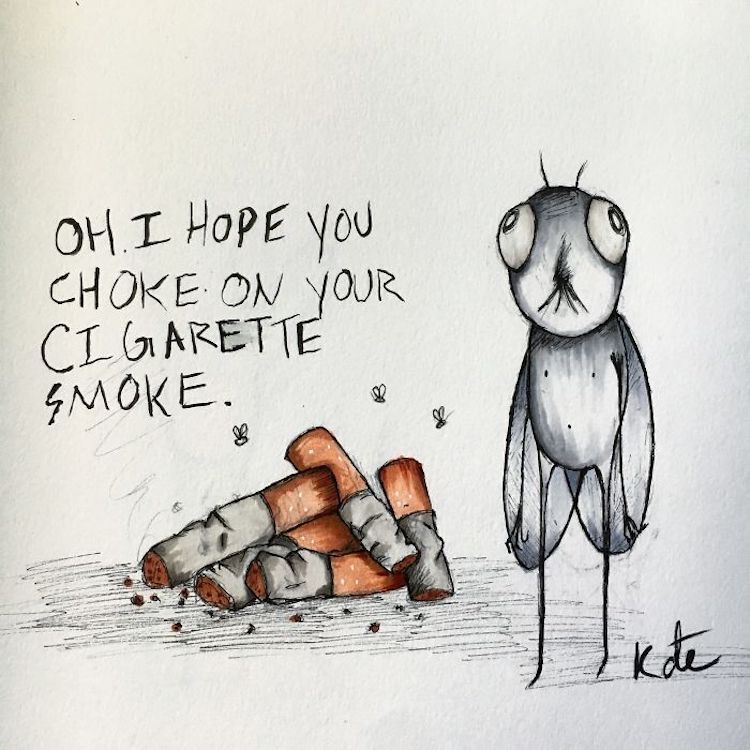 OH. I HOPE YOU
CHOKE. ON YOUR
CIGARETTE
SMOKE.
Kate